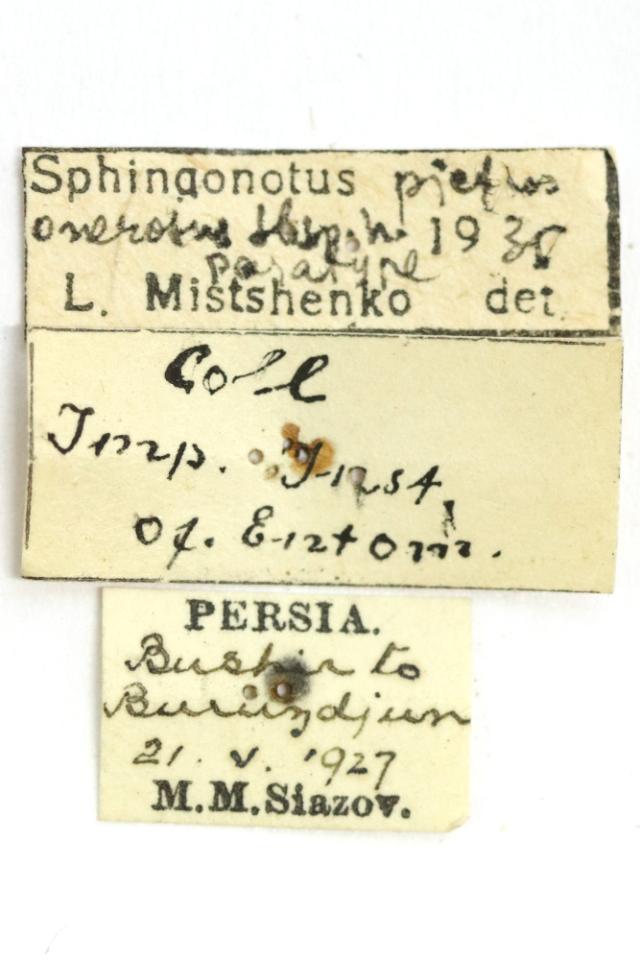 Sphingonotus pictus
1935
paratype
L. Mistshenko det.
Coll
Imp. Inst.
of. Entom.
PERSIA.
Bushir to
Burundjun
21. V. 1927
M.M. Siazov.